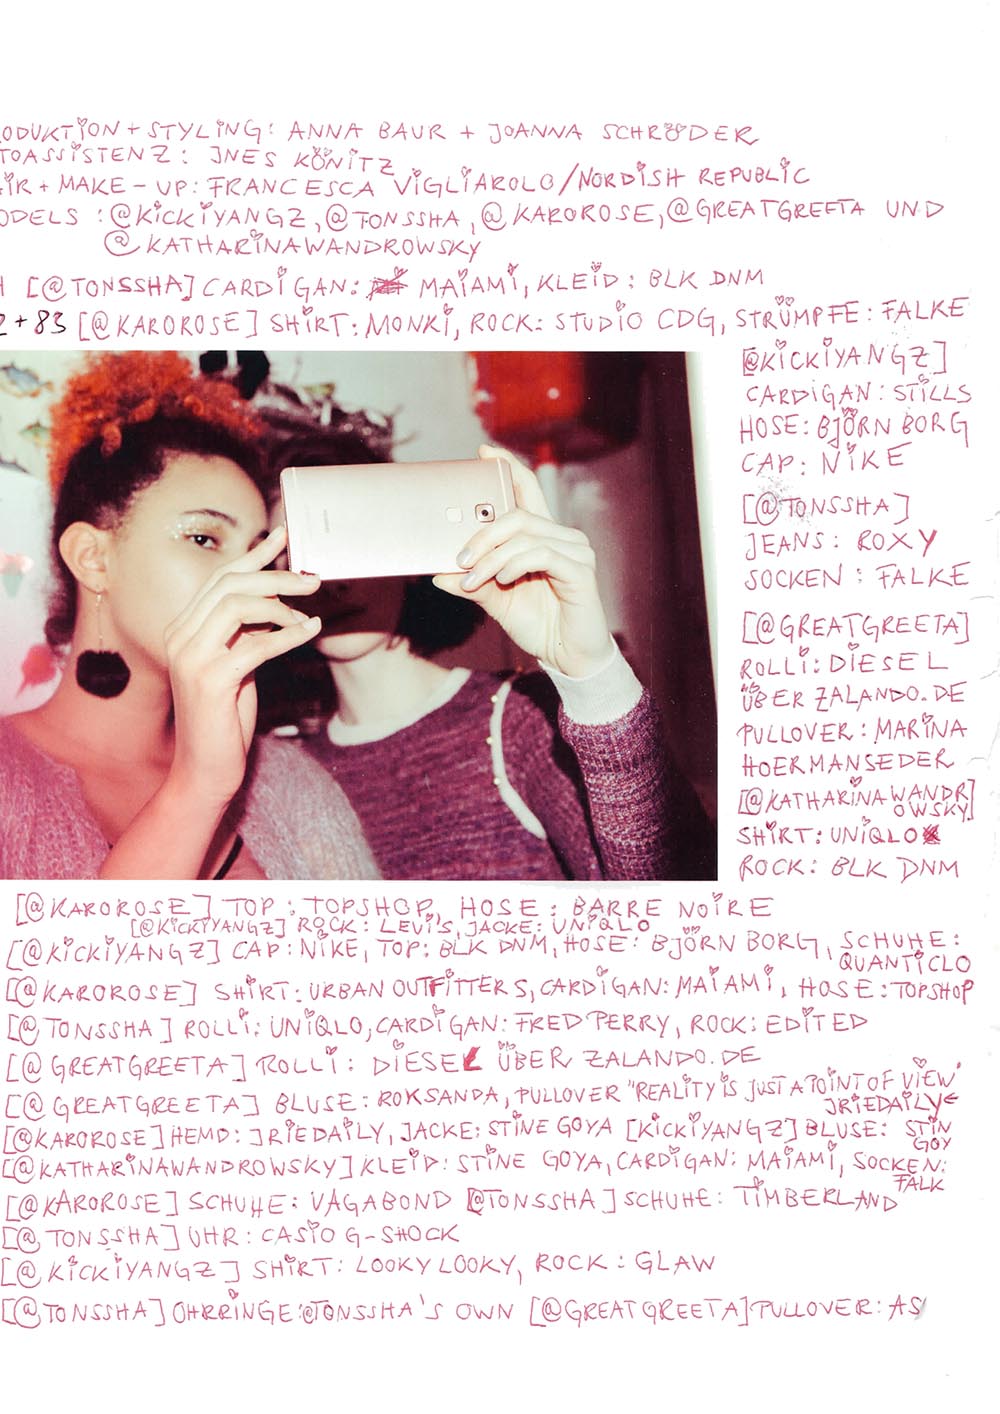 ODUKTION + STYLING: ANNA BAUR + JOANNA SCHRÖDER
TOASSISTENZ: INES KÖNITZ
AIR + MAKE-UP: FRANCESCA VIGLIAROLO/NORDISH REPUBLIC
ODELS: @KICKIYANGZ, @TONSSHA, @KAROROSE, @GREATGREETA UND
@KATHARINAWANDROWSKY
H [@TONSSHA] CARDIGAN: MAIAMI, KLEID: BLK DNM
2+83 [@KAROROSE] SHIRT: MONKI, ROCK: STUDIO CDG, STRÜMPFE: FALKE
[@KICKIYANGZ]
CARDIGAN: STILLS
HOSE: BJÖRN BORG
CAP: NIKE
[@TONSSHA]
JEANS: ROXY
SOCKEN: FALKE
[@GREATGREETA]
ROLLI: DIESEL
ÜBER ZALANDO.DE
PULLOVER: MARINA
HOERMANSEDER
[@KATHARINAWANDR
OWSKY]
SHIRT: UNIQLO
ROCK: BLK DNM
[@KAROROSE] TOP: TOPSHOP, HOSE: BARRE NOIRE
[@KICKIYANGZ] ROCK: LEVI'S, JACKE: UNIQLO
[@KICKIYANGZ] CAP: NIKE, TOP: BLK DNM, HOSE: BJÖRN BORG, SCHUHE:
QUANTICLO
[@KAROROSE] SHIRT: URBAN OUTFITTERS, CARDIGAN: MAIAMI, HOSE: TOPSHOP
[@TONSSHA] ROLLI: UNIQLO, CARDIGAN: FRED PERRY, ROCK: EDITED
[@GREATGREETA] ROLLI: DIESEL ÜBER ZALANDO.DE
[@GREATGREETA] BLUSE: ROKSANDA, PULLOVER "REALITY IS JUST A POINT OF VIEW"
IRIEDAILY
[@KAROROSE] HEMD: IRIEDAILY, JACKE: STINE GOYA [KICKIYANGZ] BLUSE: STIN
GOY
[@KATHARINAWANDROWSKY] KLEID: STINE GOYA, CARDIGAN: MAIAMI, SOCKEN:
FALK
[@KAROROSE] SCHUHE: VAGABOND [@TONSSHA] SCHUHE: TIMBERLAND
[@TONSSHA] UHR: CASIO G-SHOCK
[@KICKIYANGZ] SHIRT: LOOKY LOOKY, ROCK: GLAW
[@TONSSHA] OHRRINGE: @TONSSHA'S OWN [@GREATGREETA] PULLOVER: AS